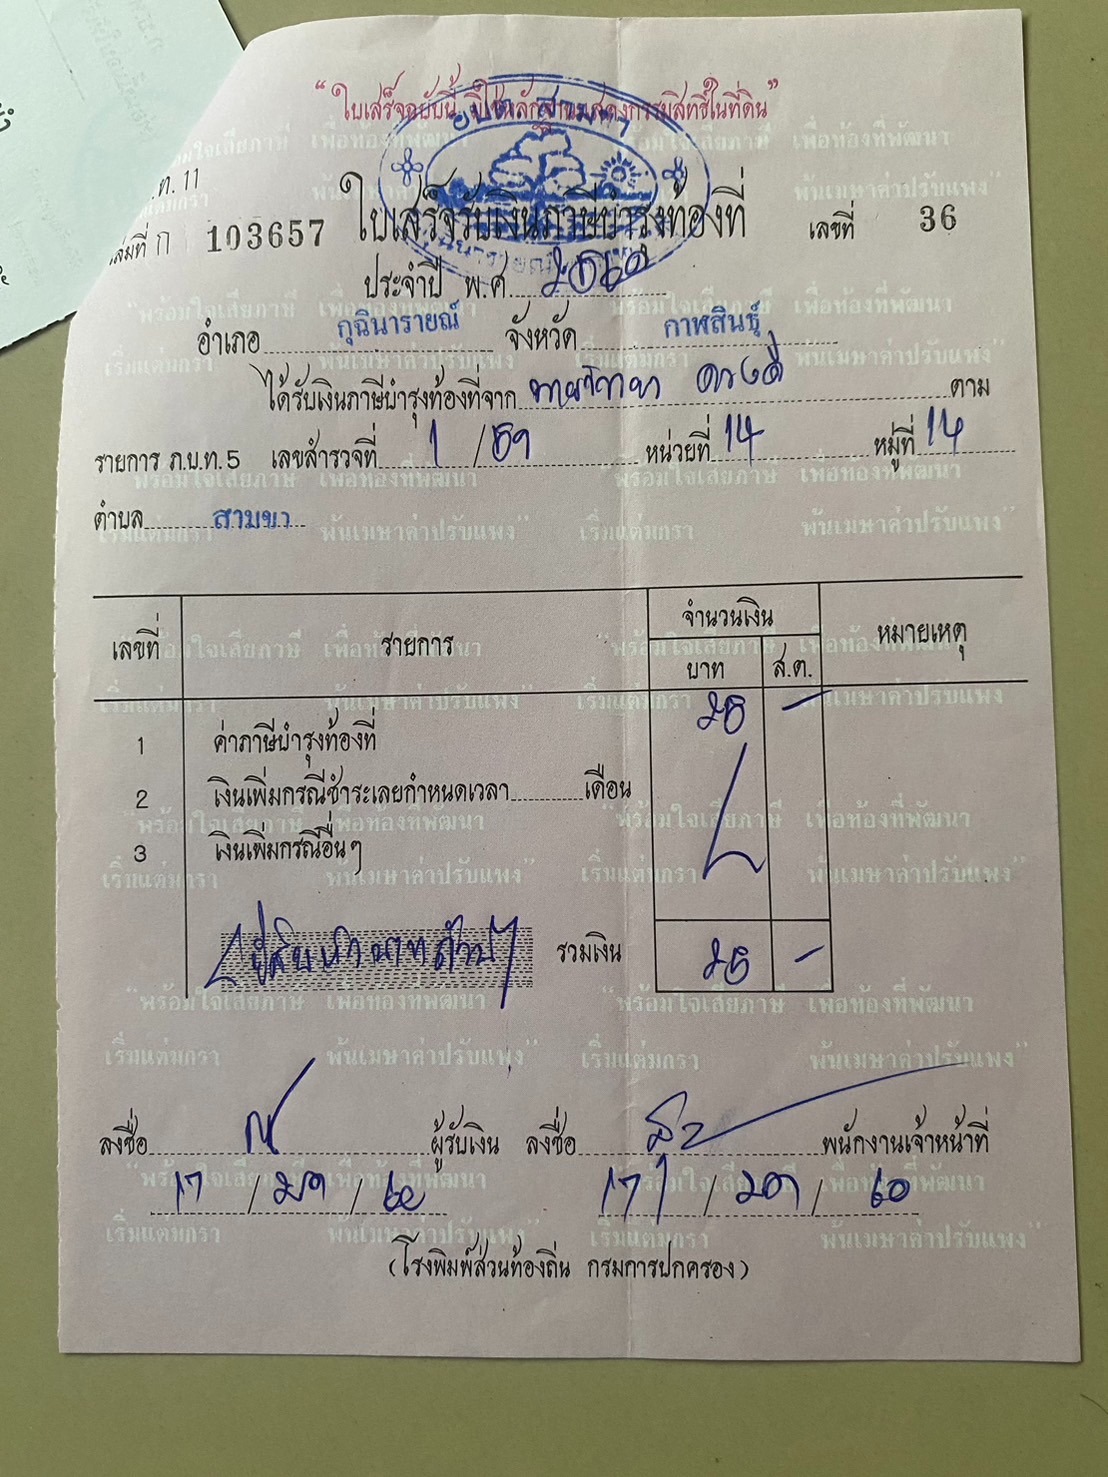 "ใบเสร็จฉบับนี้ มิใช่หลักฐานแสดงกรรมสิทธิ์ในที่ดิน"
ท. 11
เล่มที่ ก 103657 ใบเสร็จรับเงินภาษีบำรุงท้องที่ เลขที่ 36
ประจำปี พ.ศ. 2560
อำเภอ กุฉินารายณ์ จังหวัด กาฬสินธุ์
ได้รับเงินภาษีบำรุงท้องที่จาก ตาม
รายการ ภ.บ.ท. 5 เลขสำรวจที่ 1 / 51 หน่วยที่ 14 หมู่ที่ 14
ตำบล สามขา
เลขที่ รายการ จำนวนเงิน หมายเหตุ
บาท ส.ต.
1 ค่าภาษีบำรุงท้องที่ 25 -
2 เงินเพิ่มกรณีชำระเลยกำหนดเวลา เดือน
3 เงินเพิ่มกรณีอื่นๆ
(ยี่สิบห้าบาทถ้วน) รวมเงิน 25 -
ลงชื่อ ผู้รับเงิน ลงชื่อ พนักงานเจ้าหน้าที่
17 / มค / 60 17 / มค / 60
(โรงพิมพ์ส่วนท้องถิ่น กรมการปกครอง)
"พร้อมใจเสียภาษี เพื่อท้องที่พัฒนา
เริ่มแต่มกรา พ้นเมษาค่าปรับแพง"